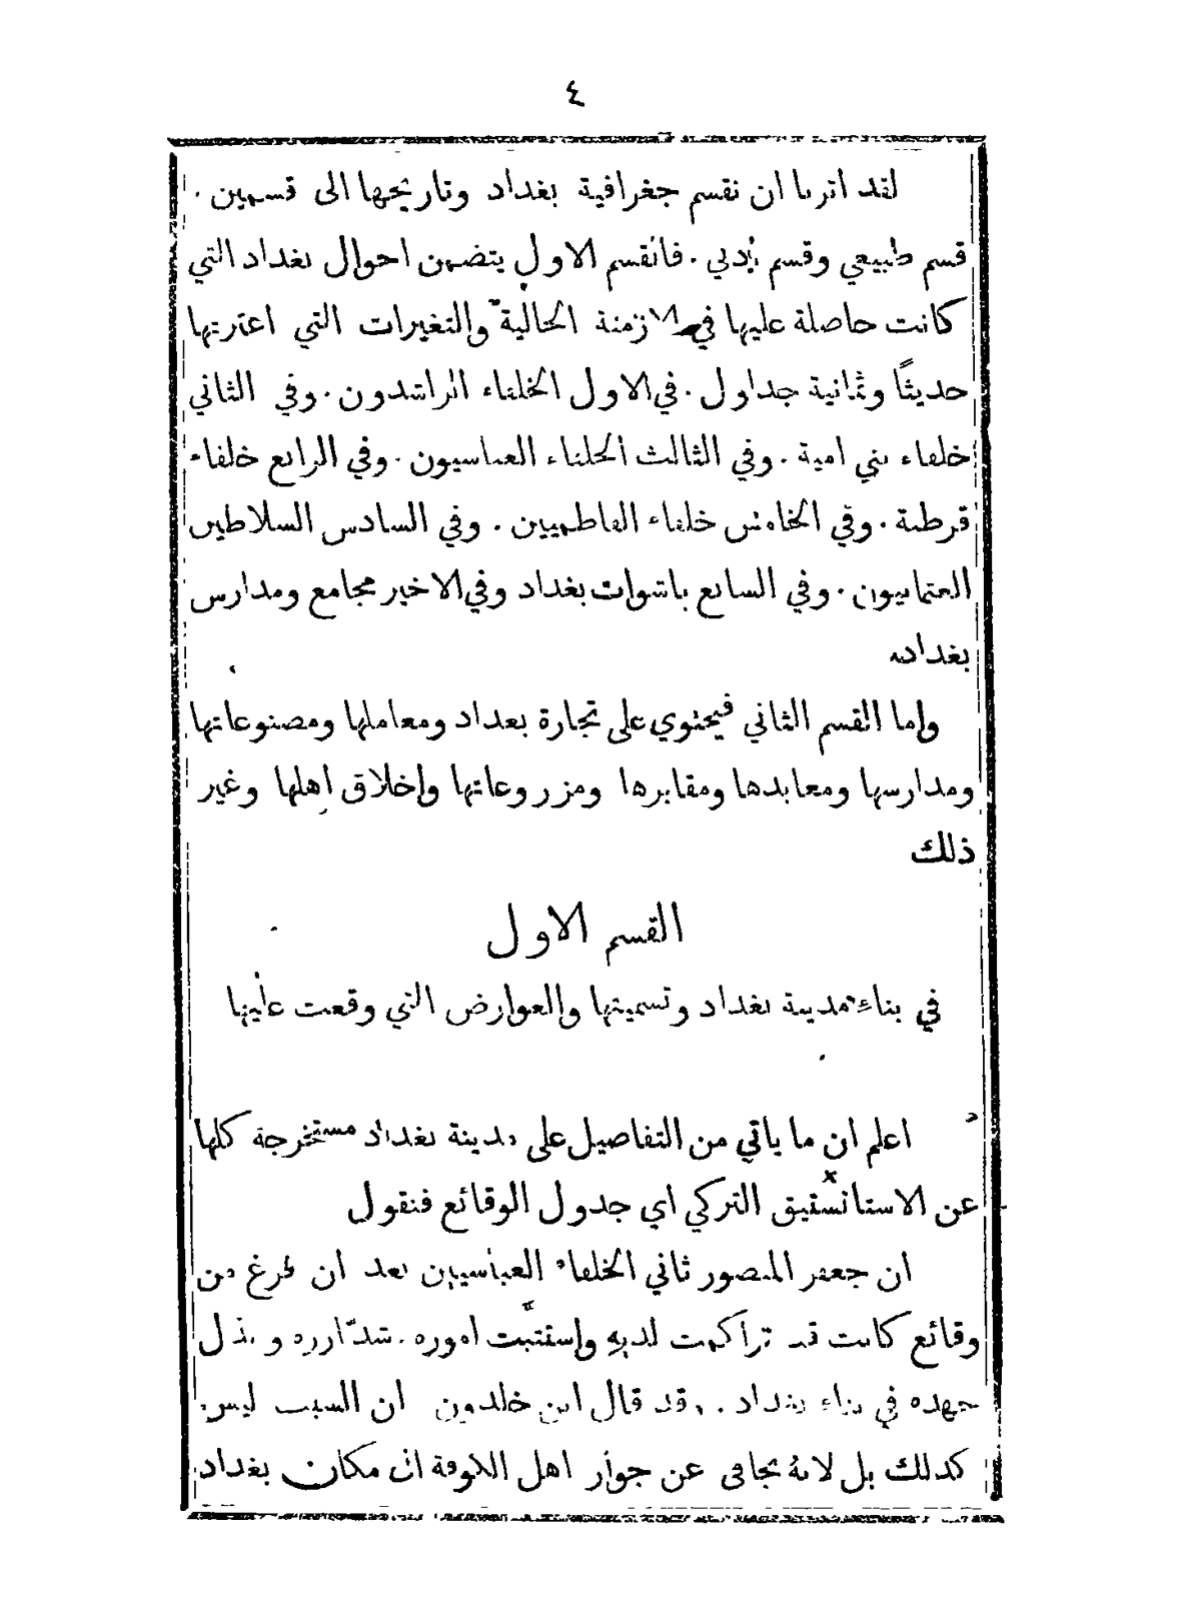 ٤
لقد اثرنا ان نقسم جغرافية بغداد وتاريخها الى قسمين .
قسم طبيعي وقسم أدبي . فالقسم الاول يتضمن احوال بغداد التي
كانت حاصلة عليها في الازمنة الحالية والتغيرات التي اعترتها
حديثًا وثمانية جداول . في الاول الخلفاء الراشدون . وفي الثاني
خلفاء بني امية . وفي الثالث الخلفاء العباسيون . وفي الرابع خلفاء
قرطبة . وفي الخامس خلفاء الفاطميين . وفي السادس السلاطين
العثمانيون . وفي السابع باشوات بغداد وفي الاخير مجامع ومدارس
بغداد
واما القسم الثاني فيحتوي على تجارة بغداد ومعاملها ومصنوعاتها
ومدارسها ومعابدها ومقابرها ومزروعاتها واخلاق اهلها وغير
ذلك
القسم الاول
في بناء مدينة بغداد وتسميتها والعوارض التي وقعت عليها
اعلم ان ما ياتي من التفاصيل على مدينة بغداد مستخرجة كلها
عن الاستانستيق التركي اي جدول الوقائع فنقول
ان جعفر المنصور ثاني الخلفاء العباسيين بعد ان فرغ من
وقائع كانت قد تراكمت لديه واستتبت اموره . شدّ ازره وبذل
جهده في بناء بغداد . وقد قال ابن خلدون ان السبب ليس
كذلك بل لانهُ تجافى عن جوار اهل الكوفة ان مكان بغداد